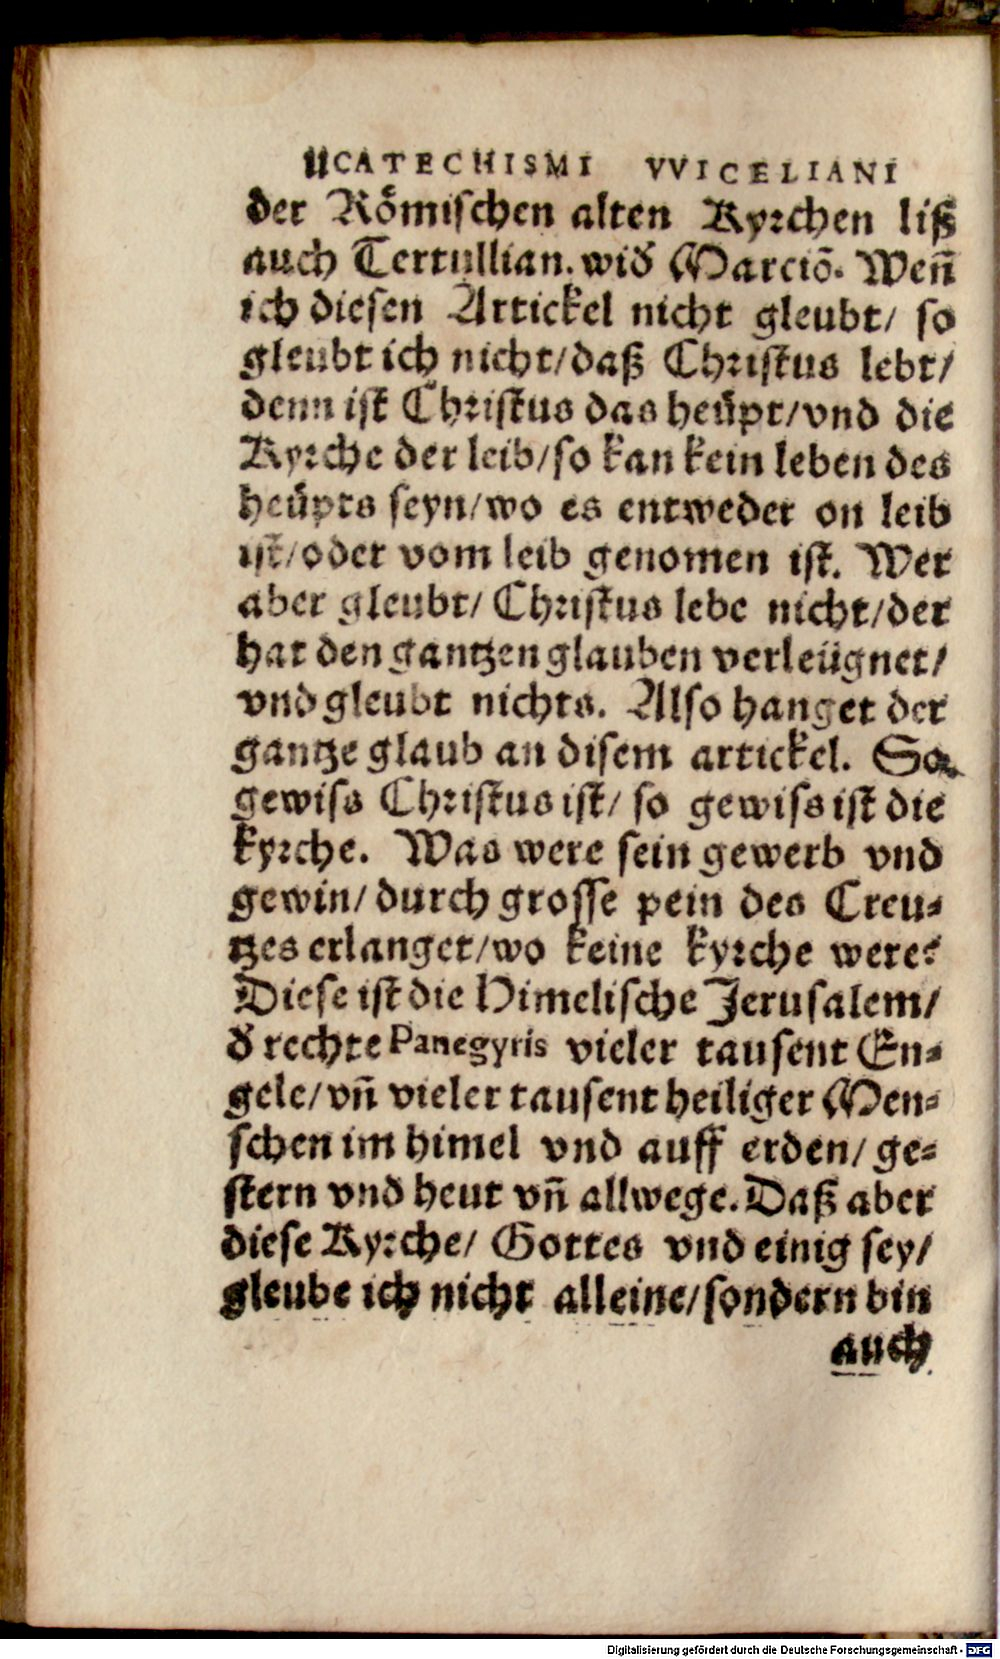 CATECHISMI VVICELIANI
der Roͤmischen alten Kyrchen liß
auch Tertullian. wid̃ Marciō. Weñ
ich diesen Artickel nicht gleubt/ so
gleubt ich nicht/daß Christus lebt/
denn ist Christus das heüpt/vnd die
Kyrche der leib/so kan kein leben des
heüpts seyn/wo es entweder on leib
ist/oder vom leib genomen ist. Wer
aber gleubt/ Christus lebe nicht/der
hat den gantzen glauben verleügnet/
vnd gleubt nichts. Also hanget der
gantze glaub an disem artickel. So
gewiss Christus ist/ so gewiss ist die
kyrche. Was were sein gewerb vnd
gewin/durch grosse pein des Creu-
tzes erlanget/wo keine kyrche were?
Diese ist die Himelische Jerusalem/
d̃ rechte Panegyris vieler tausent En-
gele/vñ vieler tausent heiliger Men-
schen im himel vnd auff erden/ ge-
stern vnd heut vñ allwege. Daß aber
diese Kyrche/ Gottes vnd einig sey/
gleube ich nicht alleine/sondern bin
auch
Digitalisierung gefördert durch die Deutsche Forschungsgemeinschaft - DFG